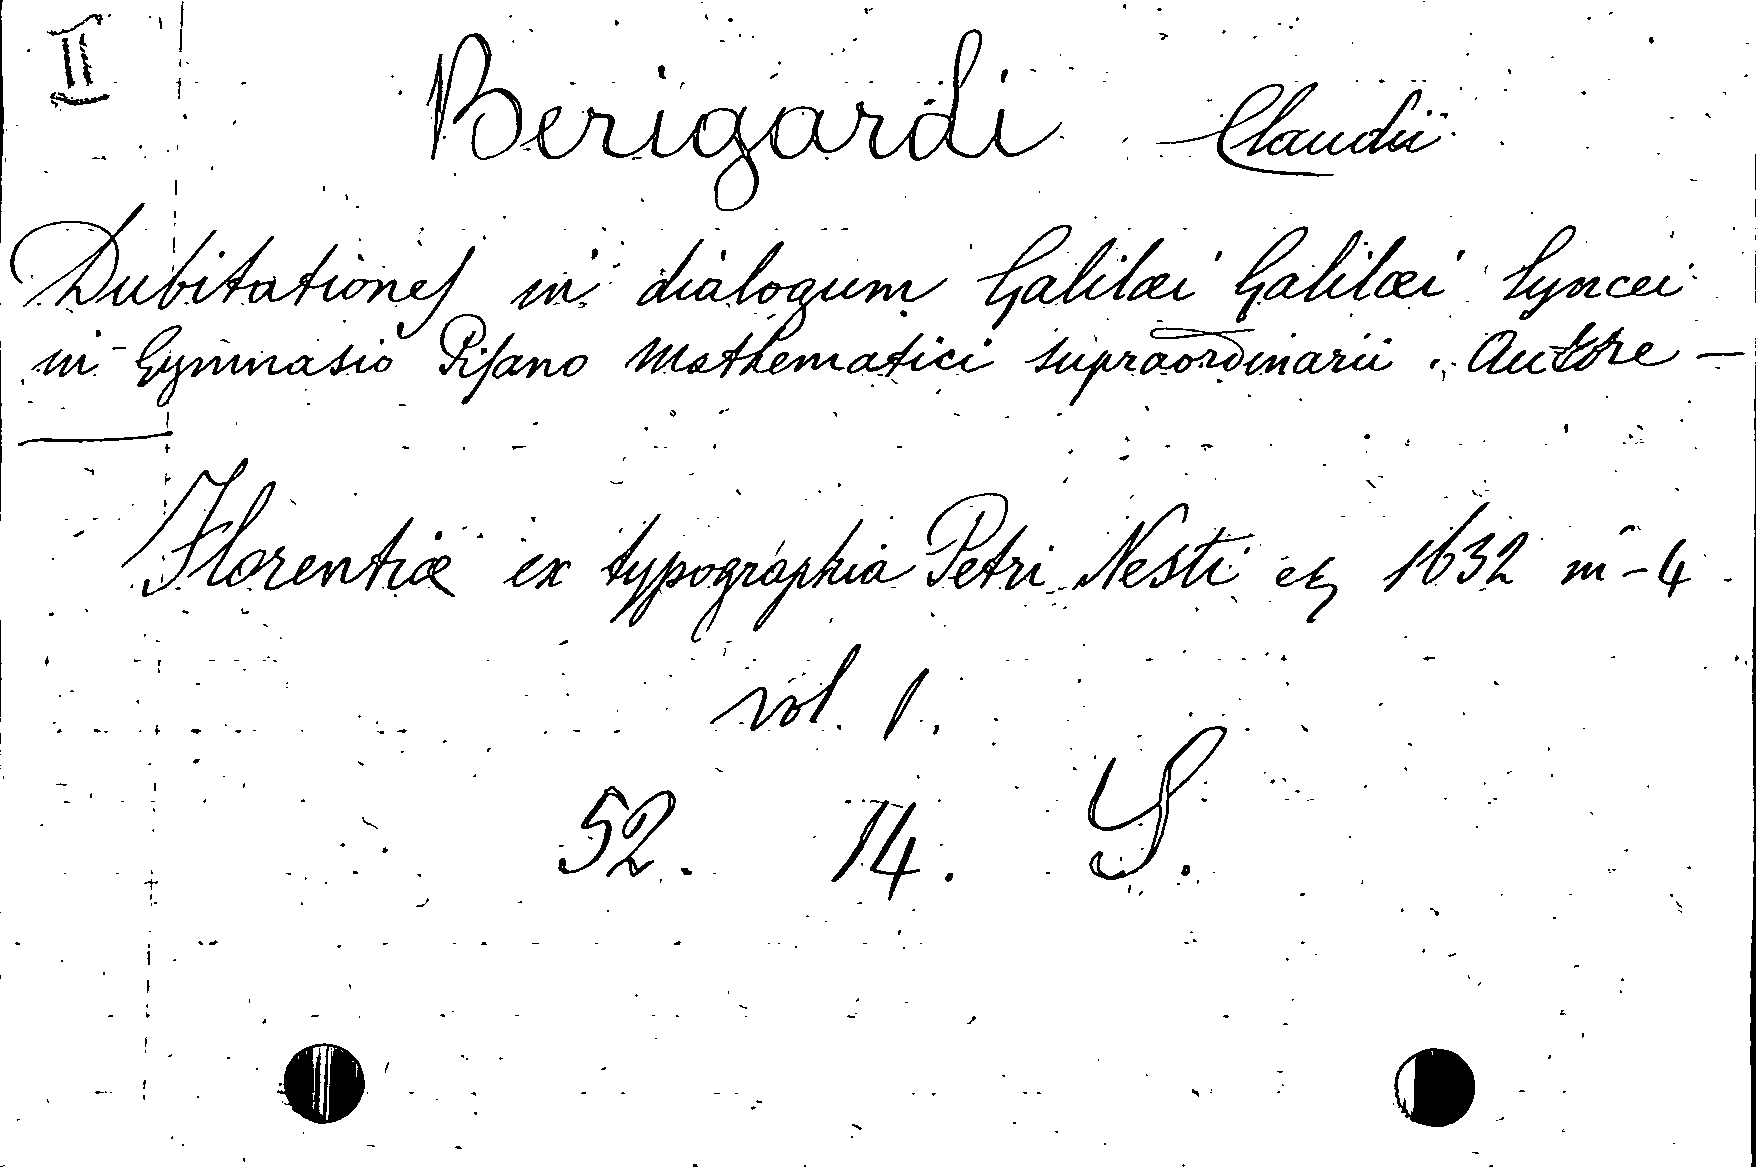 II
Berigardi Claudii
Dubitationes in dialogum Galilæi Galilæi Lyncei
in Gymnasio Pisano Mathematici supraordinarii. Autore —
—
Florentiæ ex typographia Petri Nesti etc 1632 in-4
vol. 1.
52. 14. S.